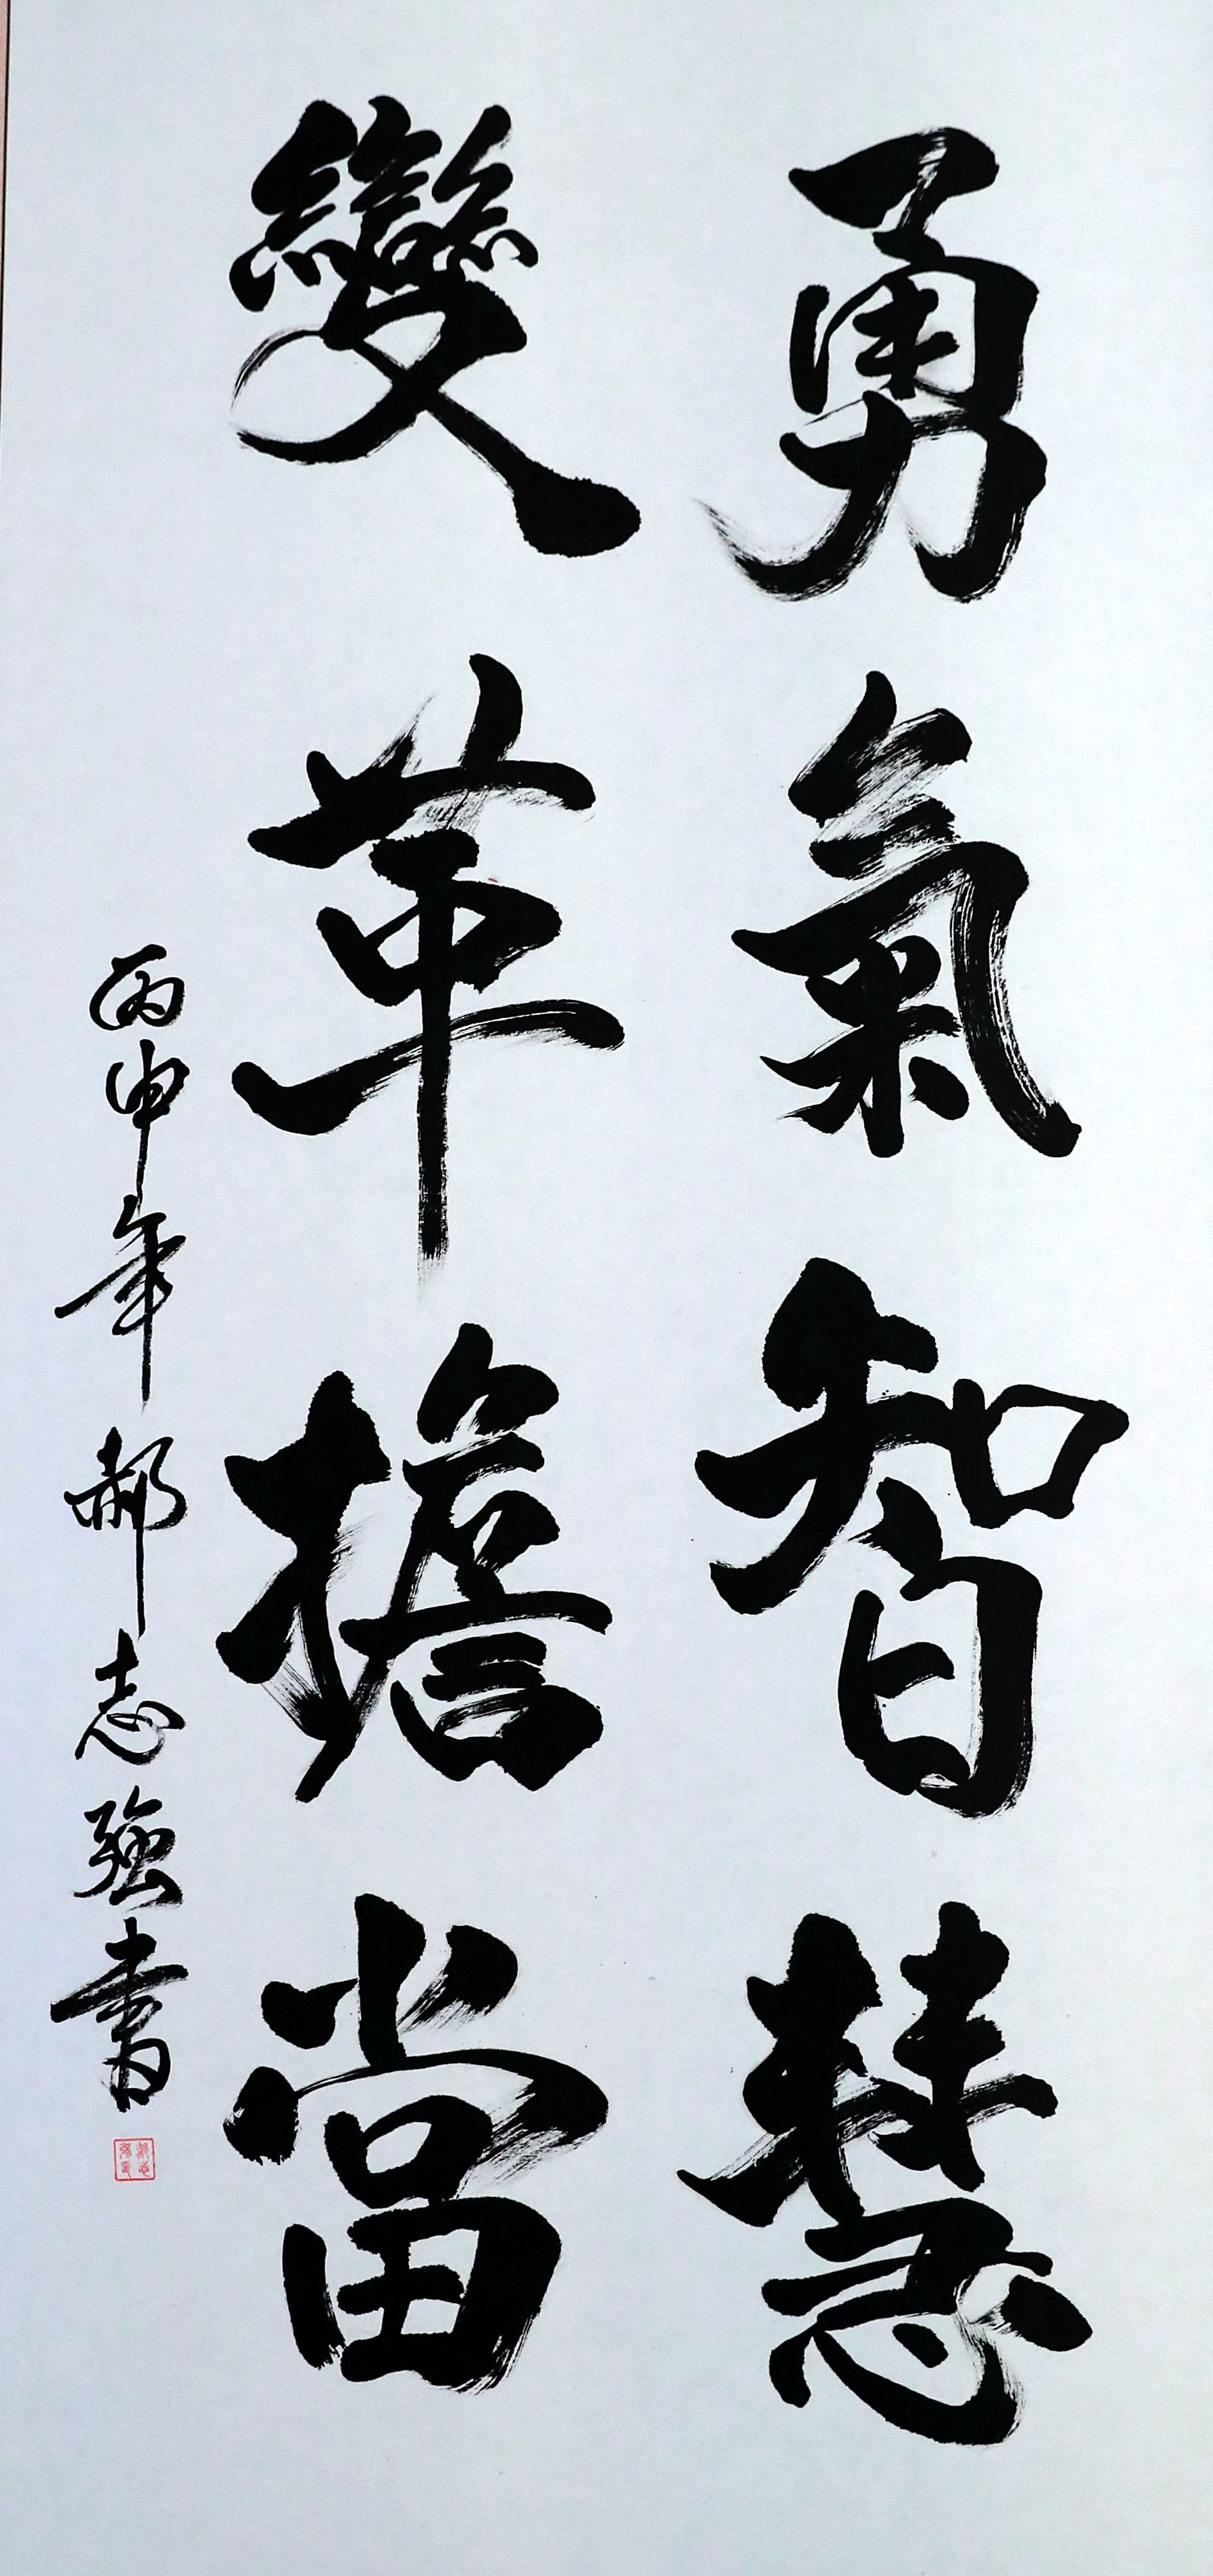 勇氣智慧
變革擔當
丙申年郝志強書